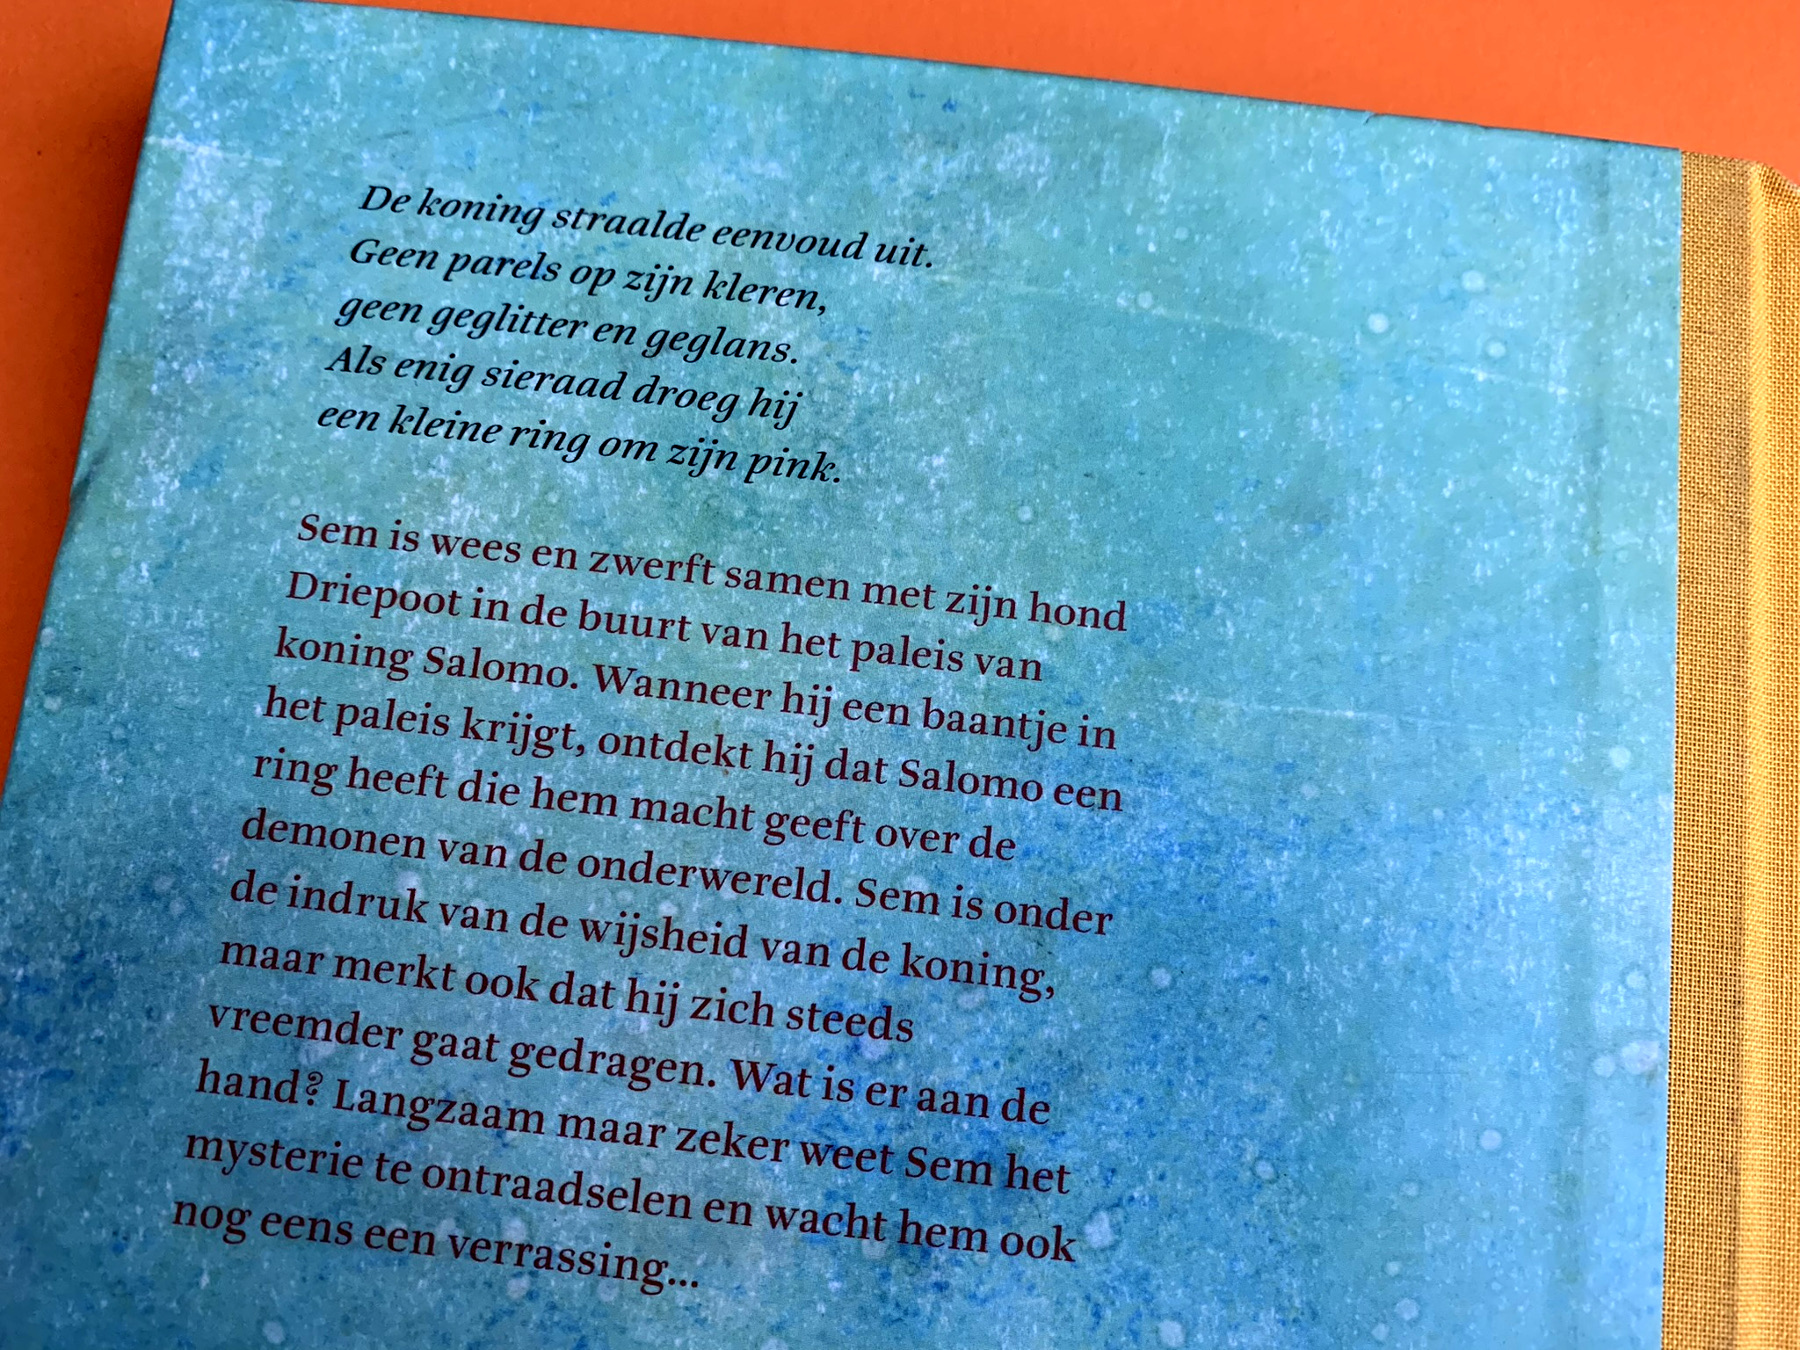 De koning straalde eenvoud uit.
Geen parels op zijn kleren,
geen geglitter en geglans.
Als enig sieraad droeg hij
een kleine ring om zijn pink.
Sem is wees en zwerft samen met zijn hond
Driepoot in de buurt van het paleis van
koning Salomo. Wanneer hij een baantje in
het paleis krijgt, ontdekt hij dat Salomo een
ring heeft die hem macht geeft over de
demonen van de onderwereld. Sem is onder
de indruk van de wijsheid van de koning,
maar merkt ook dat hij zich steeds
vreemder gaat gedragen. Wat is er aan de
hand? Langzaam maar zeker weet Sem het
mysterie te ontraadselen en wacht hem ook
nog eens een verrassing...